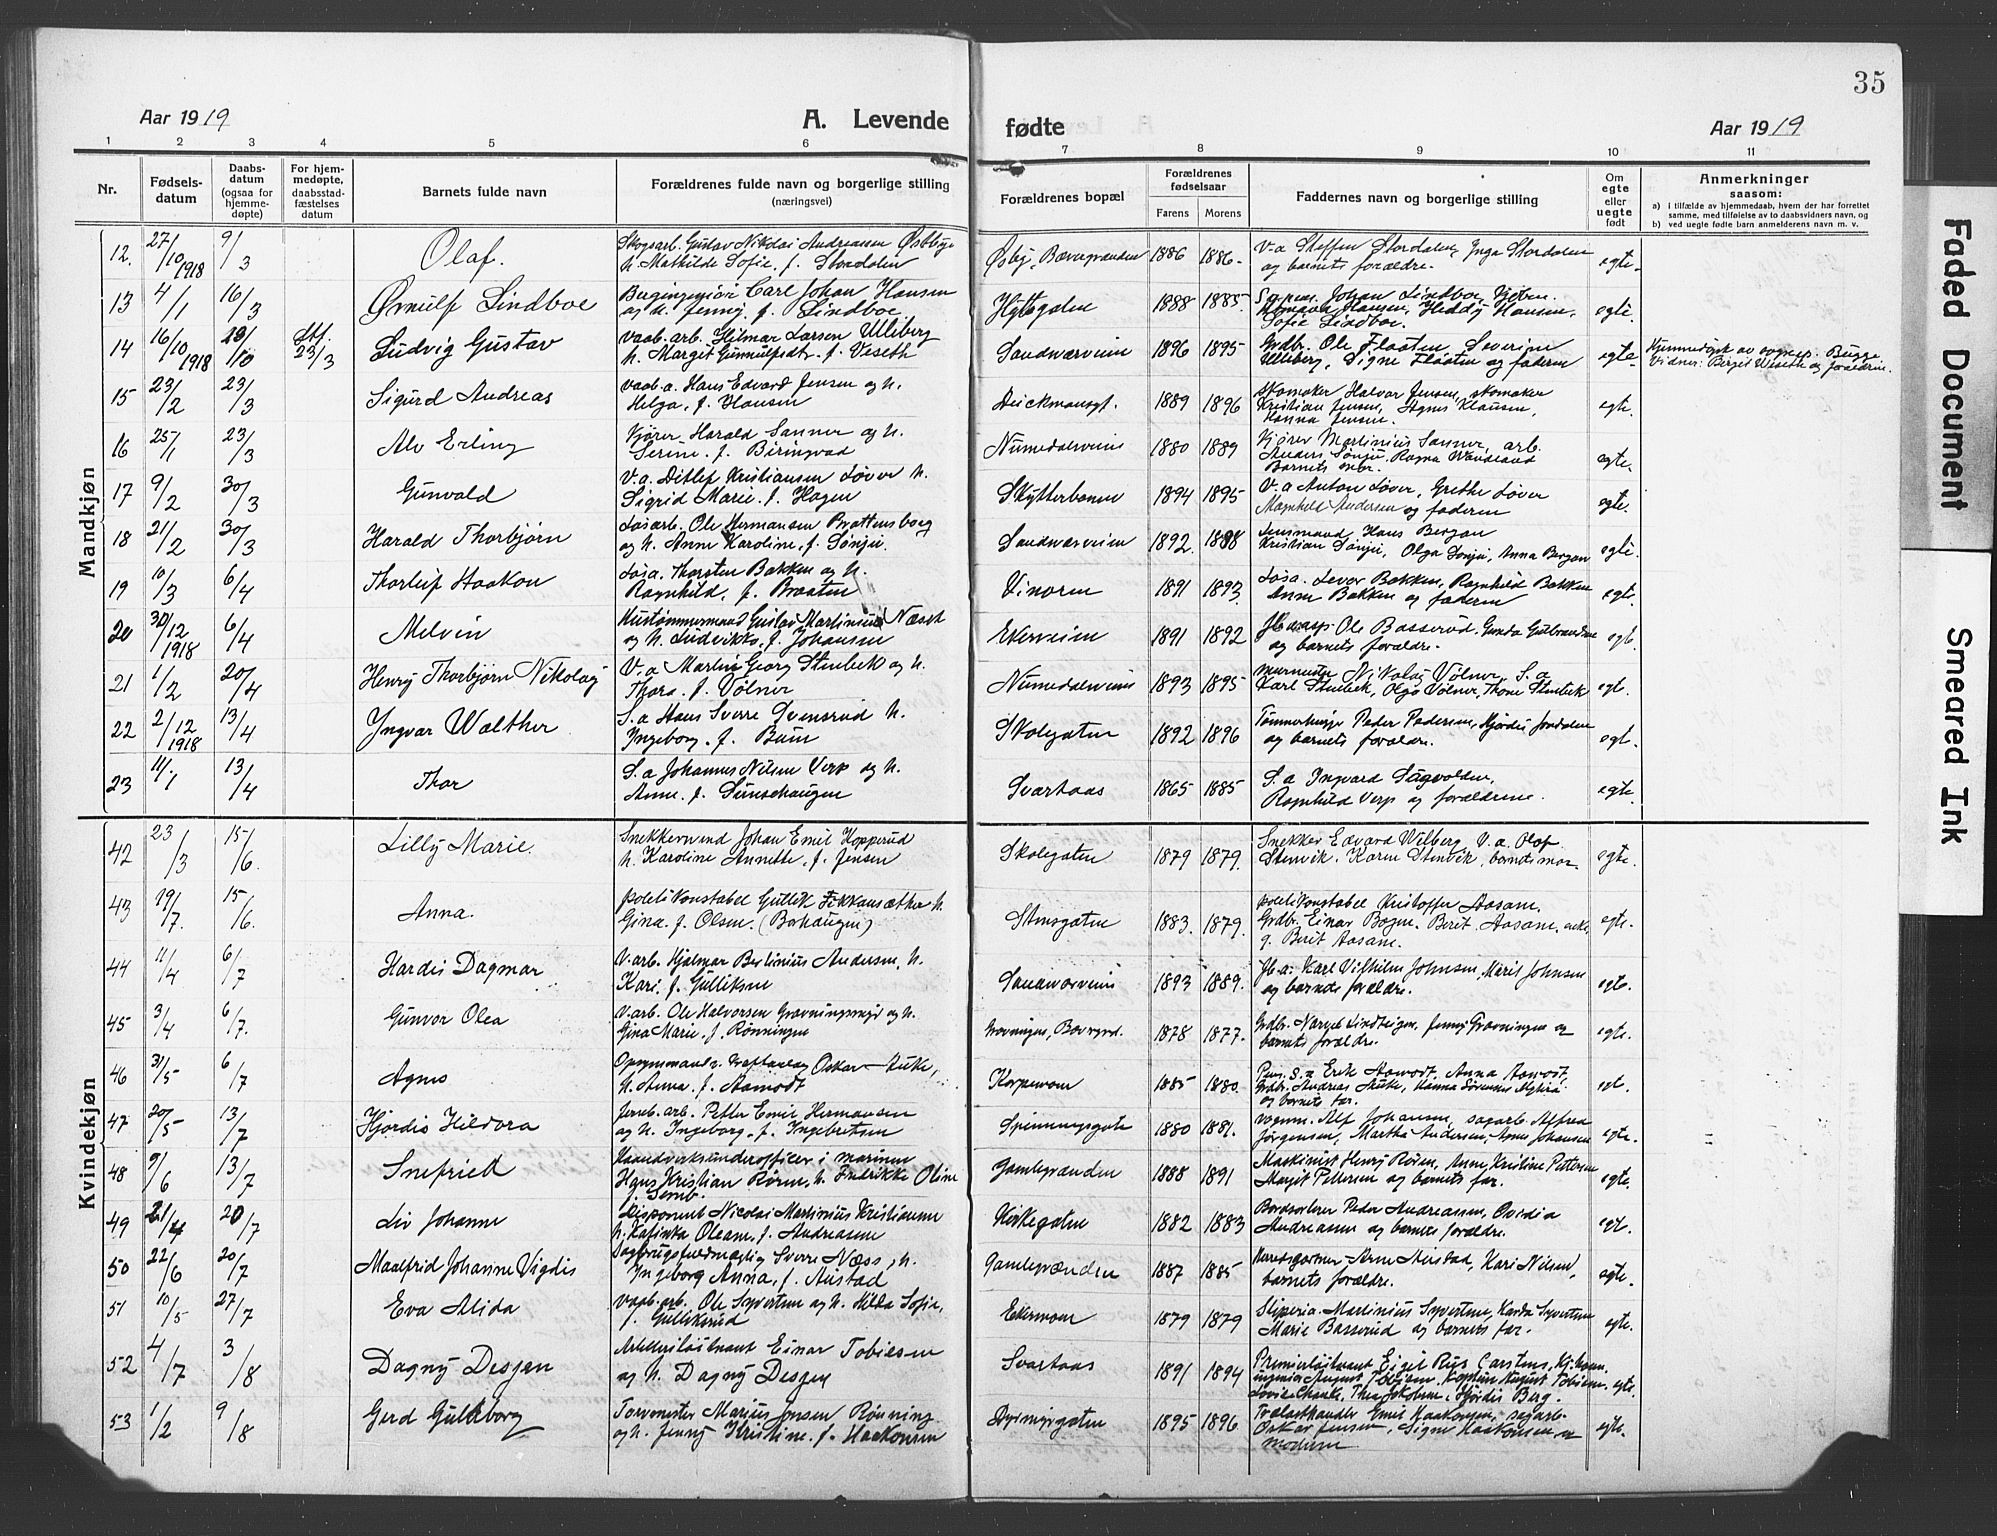 35
Aar 1919
A. Levende
fødte
Aar 1919
1 2 3 4 5 6 7 8 9 10 11
Nr.
Fødsels-
datum
Daabs-
datum
(ogsaa for
hjemme-
døpte)
For hjem-
medøpte,
daabsstad-
fæstelses
datum
Barnets fulde navn
Forældrenes fulde navn og borgerlige stilling
(næringsvei)
Forældrenes bopæl
Forældrenes
fødselsaar
Farens Morens
Faddernes navn og borgerlige stilling
Om
egte
eller
uegte
født
Anmerkninger
saasom:
a) i tilfælde av hjemmedaab, hvem der har forrettet
samme, med tilføielse av to daabsvidners navn, og
b) ved uegte fødte barn anmelderens navn m. v.
Mandkjøn
12. 27/10 1918 9/3 Olaf. Skogsarb. Gustav Nikolai Andreassen Østbye
h. Mathilde Sofie, f. Stordalen
Østby, 1886 1886 V-a Steffen Stordalen, Inga Stordalen
og barnets forældre. egte
13 4/1 16/3 Ørnulf Lindboe Carl Johan Hansen
og h. Jenny f. Lindboe
Hyttegaten 1888 1885 Johan Lindboe,
Hansen, Heddy Hansen,
Sofie Lindboe. egte.
14 16/10 1918 Stf. 23/3 Ludvig Gustav vaab. arb. Hilmar Larsen Ulleberg
h. Marget Gunnulfsdtr. f. Veseth
Sandsværveien 1896 1895 Grdbr. Ole Flaaten, Severine
Ulleberg, Signe Flaaten og faderen egte Hjemmedøpt av sognepr. Bugge
Vidner: Berget Weseth og forældrene.
15 23/2 23/3 Sigurd Andreas vaab. a. Hans Edvard Jensen og h.
Helga, f. Hansen
Deichmansgt. 1889 1896 skomaker Halvor Jensen, skomaker
Kristian Jensen, Agnes Klausen,
Hanna Jensen. egte.
16 25/1 23/3 Alv Erling Kjører Harald Sanner og h.
Serine f. Beringvad
Numedalsveien 1880 1889 Kjører Martinius Sanner, arb.
Anders Sønju, Ragna Wandelaad
Barnets mor. egte.
17 9/2 30/3 Gunvald V. a. Ditlef Kristiansen Løver h.
Sigrid Marie f. Hagen
Skytterbanen 1894 1895 V. a Anton Løver, Grethe Løver
Magnhild Andersen og faderen egte.
18 21/2 30/3 Harald Thorbjørn Løsarb. Ole Hermansen Brattensborg
og h. Anne Karoline, f. Sønju.
Sandsværveien 1892. 1888 Lensmand Hans Bergan
Kristian Sønju, Olga Sønju, Anna Bergan egte.
19 10/3 6/4 Thorleif Haakon Løsa. Thorsten Bakken og h.
Ragnhild, f. Braaten
Vinoren 1891 1893. Løsa. Lever Bakken, Ragnhild Bakken
Anne Bakken og faderen egte.
20 30/12 1918 6/4 Melvin Hustømmermand Gustav Martinius Næset
og h. Ludvikke, f. Johansen
Ekerveien 1891 1892 Ole Basserud, Gunda Gulbrandsen
og barnets forældre. egte
21 1/2 20/4 Henry Thorbjørn Nikolay V. a Martin Georg Stenbek og h.
Thora f. Vølner
Numedalsveien 1893 1895 murmester Nikolay Vølner, S. a
Karl Stenbek, Olga Vølner, Thora Stenbek egt.
22 2/12 1918 13/4 Yngvar Walther S. a Hans Sverre Svensrud h.
Ingeborg f. Buin
Skolegaten 1892 1896 Peder Pedersen, Hjørdis
og barnets forældre. egt.
23 11/1 13/4 Thor S. a Johannes Nilsen Verp og h.
Anne. f.
Svartaas 1865 1885 S. a Ingvard Sagvolden,
Ragnhild Verp og forældrene. egte.
Kvindekjøn
42 23/3 15/6 Lilly Marie. Snekkersvend Johan Emil Kopperud
h. Karoline Annette, f. Jensen
Skolegaten 1879 1879. Snekker Edvard Wilberg V. a. Olaf
Stenvik. Karen Stenvik, barnets mor egte.
43 15/6. Anna. politikonstabel Gullik
Gina f. Olsen. (Borhaugen)
Stensgaten 1883. 1879. politikonstabel Kristoffer Aasam.
Grdbr. Einar Bogen. Berit Aasam. enke,
g. Berit Aasam. egte.
44 11/4 6/7 Hardis Dagmar V. arb. Hjalmar Berlinius Andersen, h.
Kari, f. Gulliksen
Sandsværveien 1893 1889. Karl Vilhelm Johnsen, Marit Johnsen
og barnets forældre. egte.
45 3/4 6/7. Gunvor Olea V. arb. Ole Halvorsen Gravningsmyr og h.
Gina Marie, f. Rønningen
Gravningen, 1878 1877. Grdbr. Narve Lindteigen, Jenny Gravningen og
barnets forældre. egte.
46 31/5 6/7 Agnes Oskar Auke,
h. Anna, f. Aamodt
Korpemoen 1885 1880. Erik Aamodt, Anna Aamodt,
Grdbr. Andreas Auke, Hanna
og barnets far. egt.
47 20/5 13/7 Hjørdis Hildora Jernb. arb. Petter Emil Hermansen
og h. Ingeborg, f. Ingebretsen
1880 1881. Alf Johansen, sagarb. Alfred
Jørgensen, Martha Andersen, Agnes Johansen egte.
48 9/6 13/7 Snefried Haandverksunderofficer i marinen
Hans Kristian Røren, h. Fredrikke Oline
f. Semb.
Gamlegrænden 1888 1891 Maskinist Henry Røren, Anne Kristine Pettersen
Margit Pettersen og barnets far. egte.
49 21/4 20/7 Liv Johanne Disponent Nicolai Martinius Kristiansen
h. Katinka Oleane, f. Andreassen
Kirkegaten 1882 1883 Peder Andreassen, Ovidia
Andreassen og barnets forældre. egt.
50 22/6 20/7 Maalfrid Johanne Vigdis Sagbrugsfuldmægtig Sverre Næss, h.
Ingeborg Anna, f. Austad
Gamlegrænden 1887 1885 Arne Austad, Kari Nilsen,
barnets forældre. egte.
51 10/5 27/7 Eva Alida Vaab. arb. Ole Syvertsen og h. Hilda Sofie,
f. Gulliksrud
Ekermoen 1879 1879 Sliperia. Martinius Syvertsen, Karda Syvertsen
Marie Basserud og barnets far. egte.
52 4/7 3/8 Dagny Desjen Artilleriløitnant Einar Tobiesen
og h. Dagny Desjen
Svartaas 1891 1894 Premierløitnant Eigil Riis Carstens,
August Tobiesen, Kaptein August Tobiesen.
Thea Jakobsen, Hjørdis Berg. egte.
53 1/2 9/8 Gerd Gulleborg Torvmester Marius Jensen Rønning
og h. Jenny Kristine f. Haakonsen
Dyrmyrgaten 1895 1896. Trælasthandler Emil Haakonsen, sagarb.
Oskar Jensen, Signe Haakonsen og
moderen egte.
Faded Document
Smeared Ink